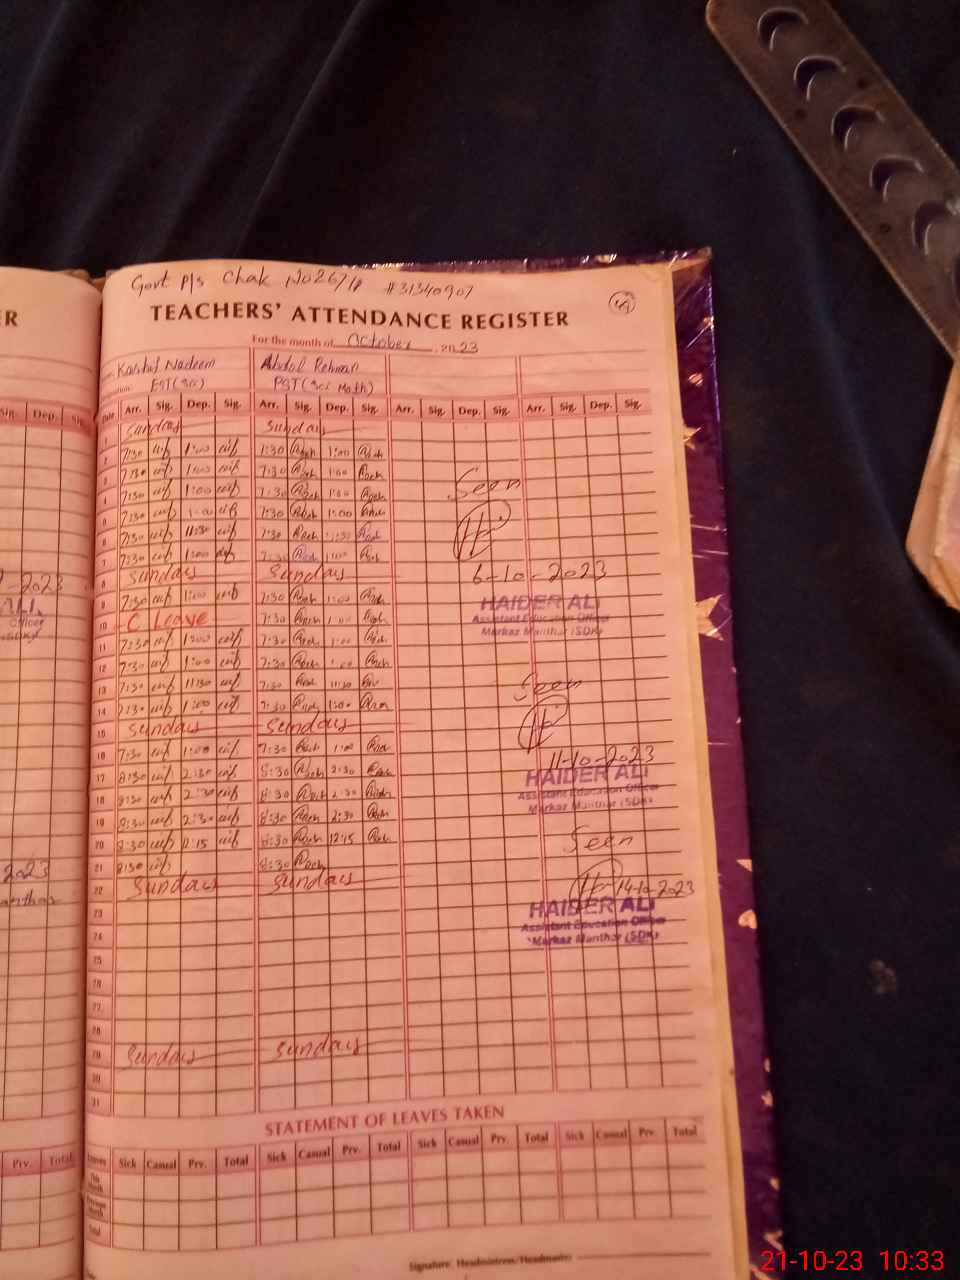 Govt P/S Chak No 267/P #31340907
TEACHERS' ATTENDANCE REGISTER
For the month of October, 2023
Kashif Nadeem Abdul Rehman
EST (Sci) PST (Sci Math)
Date Arr. Sig. Dep. Sig. Arr. Sig. Dep. Sig. Arr. Sig. Dep. Sig. Arr. Sig. Dep. Sig.
1 Sunday Sunday
2 7:30 1:00 7:30 1:00
3 7:30 1:00 7:30 1:00
4 7:30 1:00 7:30 1:00
5 7:30 1:00 7:30 1:00
6 7:30 11:30 7:30 11:30
7 7:30 1:00 7:30 1:00
8 Sunday Sunday
9 7:30 1:00 7:30 1:00
10 C Leave 7:30 1:00
11 7:30 1:00 7:30 1:00
12 7:30 1:00 7:30 1:00
13 7:30 11:30 7:30 11:30
14 7:30 1:00 7:30 1:00
15 Sunday Sunday
16 7:30 1:00 7:30 1:00
17 8:30 2:30 8:30 2:30
18 8:30 2:30 8:30 2:30
19 8:30 2:30 8:30 2:30
20 8:30 12:15 8:30 12:15
21 8:30 8:30
22 Sunday Sunday
23
24
25
26
27
28
29 Sunday Sunday
30
31
Seen
6-10-2023
HAIDER ALI
Assistant Education Officer
Markaz Manthar (SDK)
Seen
11-10-2023
HAIDER ALI
Assistant Education Officer
Markaz Manthar (SDK)
Seen
14-10-2023
HAIDER ALI
Assistant Education Officer
Markaz Manthar (SDK)
STATEMENT OF LEAVES TAKEN
Leaves Sick Casual Prv. Total Sick Casual Prv. Total Sick Casual Prv. Total Sick Casual Prv. Total
This Month
Previous Month
Total
Signature: Headmistress/Headmaster
ER
Sig. Dep. Sig.
2023
ALI
Officer
2023
Prv. Total
21-10-23 10:33